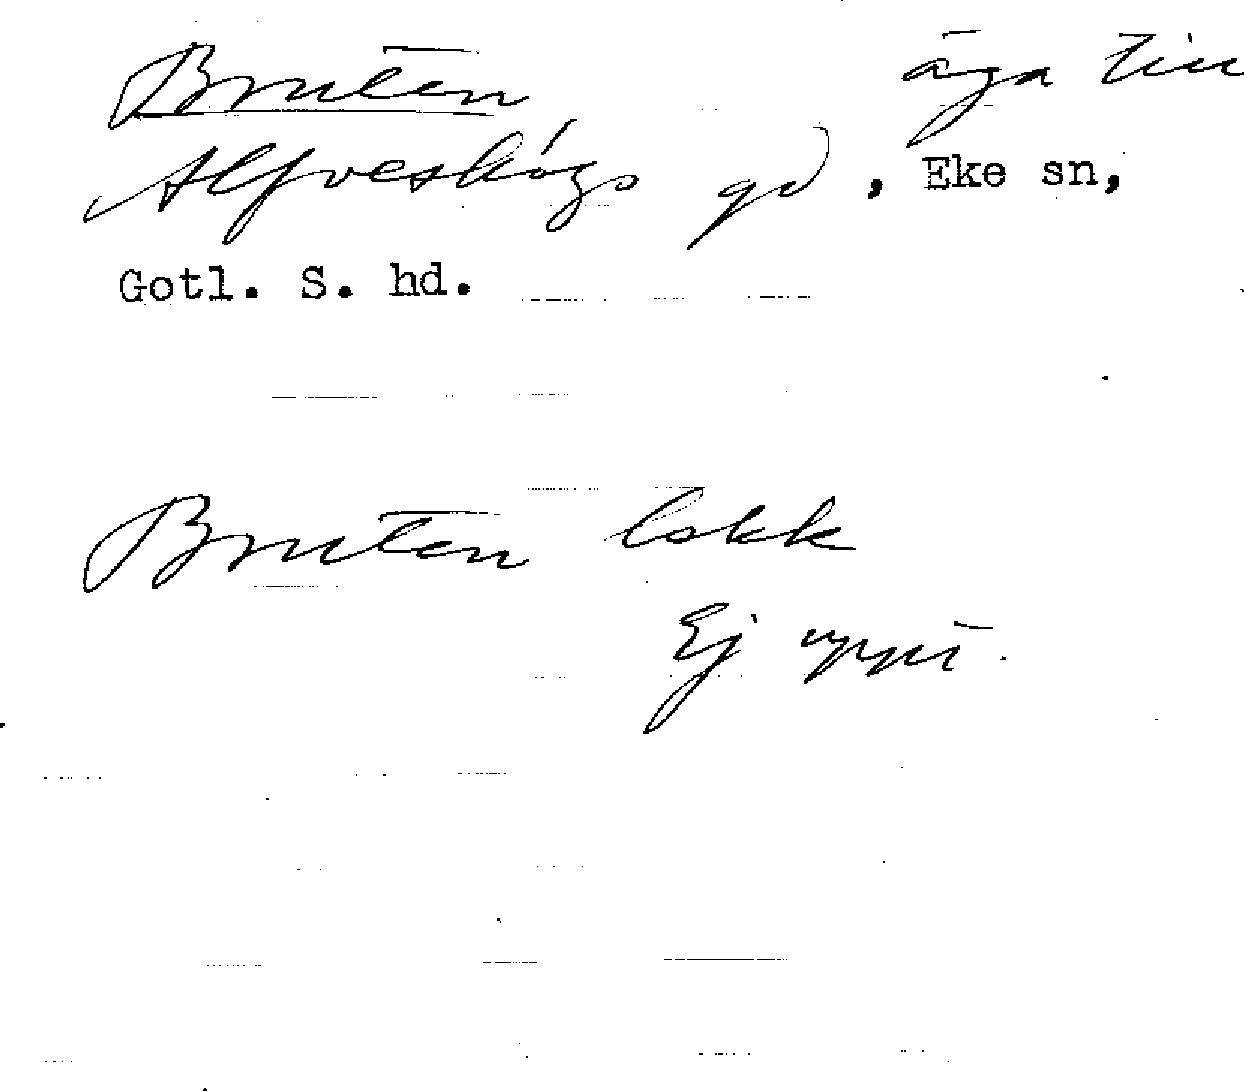 Bruten äga till
Alfveskógs gd, Eke sn,
Gotl. S. hd.
Bruten lokk
Ej uppt.